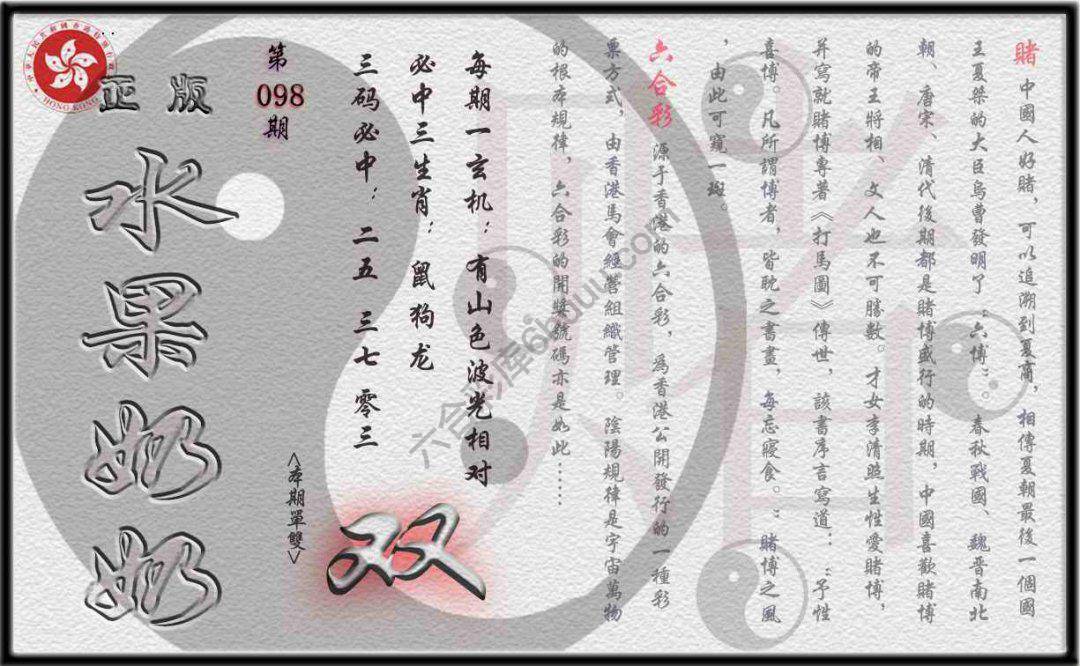 賭 中國人好賭，可以追溯到夏商，相傳夏朝最後一個國
王夏桀的大臣烏曹發明了“六博”。春秋戰國、魏晉南北
朝、唐宋、清代後期都是賭博盛行的時期，中國喜歡賭博
的帝王將相、文人也不可勝數。才女李清照生性愛賭博，
并寫就賭博專著《打馬圖》傳世，該書序言寫道：“予性
喜博。凡所謂博者，皆耽之晝晝，每忘寢食。”賭博之風
，由此可窺一斑。
六合彩 源于香港的六合彩，為香港公開發行的一種彩
票方式，由香港馬會經營組織管理。陰陽規律是宇宙萬物
的根本規律，六合彩的開獎號碼亦是如此……
每期一玄机：有山色波光相对
必中三生肖：鼠狗龙
三码必中：二五 三七 零三
双
<本期單雙>
第
098
期
正版
水果奶奶
HONG KONG
六合彩库6kuuu.com